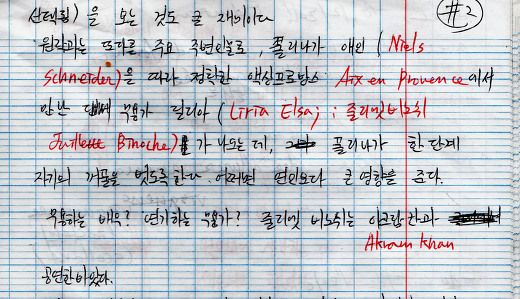 #2
선택됨) 을 보는 것도 큰 재미이다
원작과는 또다른 주요 주변인물로, 폴리나가 애인 (Niels
Schneider)을 따라 정착한 엑상프로방스 Aix en Provence에서
만난 무용가 릴리아 (Liria Elsaj ; 줄리엣비노쉬
Juliette Binoche) 가 나오는 데, 폴리나가 한 단계
자기의 꺼풀을 벗도록 한다. 어쩌면 연인보다 큰 영향을 준다.
무용하는 배우? 연기하는 무용가? 줄리엣 비노쉬는 아크람 칸과
Akram Khan
공연한바있다.